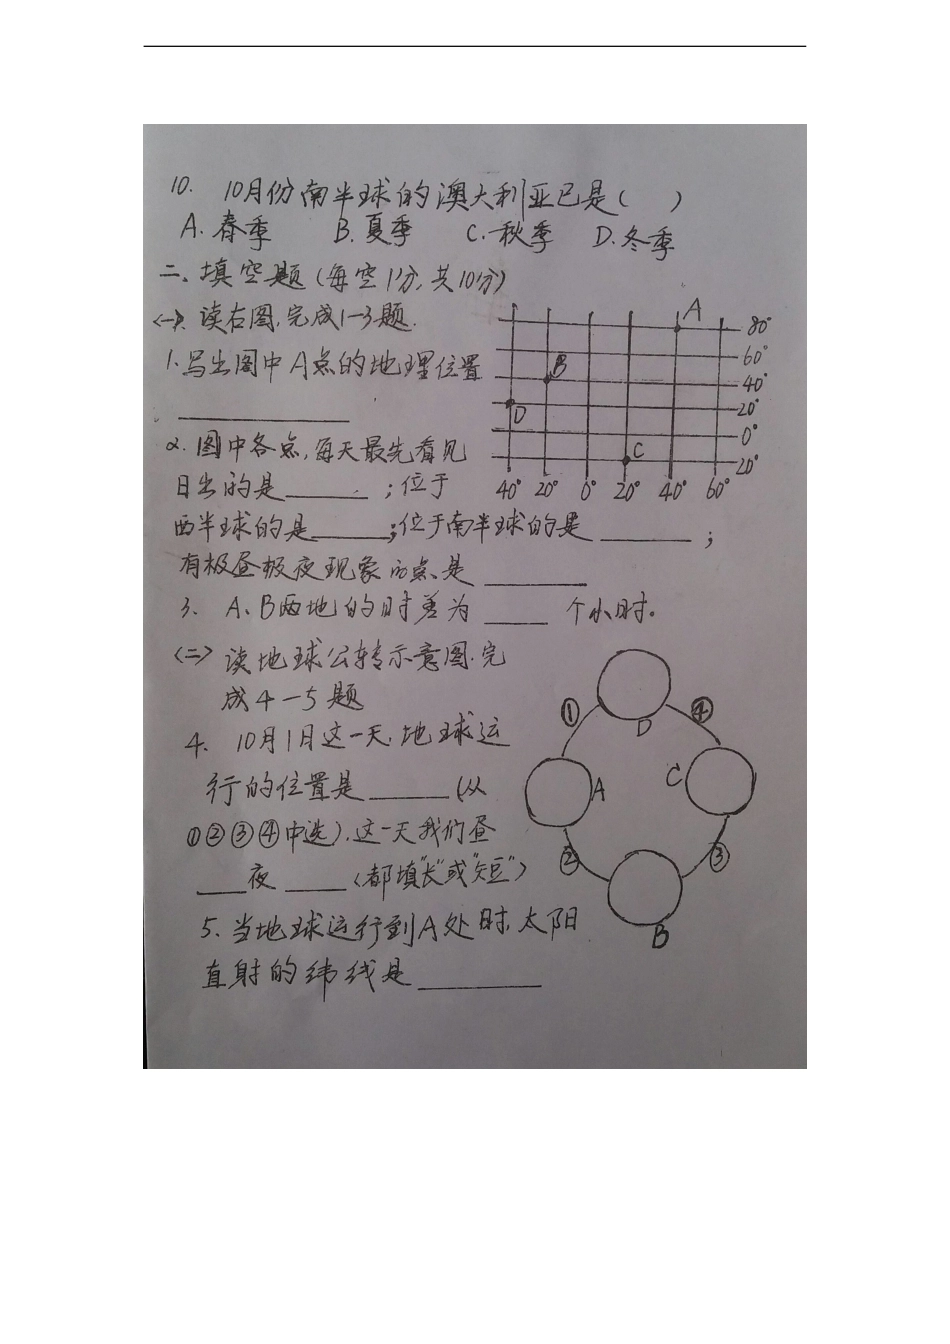 10. 10月份南半球的澳大利亚已是( )
A.春季 B.夏季 C.秋季 D.冬季
二、填空题(每空1分,共10分)
<一>、读右图,完成1-3题.
1.写出图中A点的地理位置
2.图中各点,每天最先看见
日出的是______;位于
西半球的是______;位于南半球的是______;
有极昼极夜现象的点是______
3. A、B两地的时差为____个小时。
<二> 读地球公转示意图.完
成4-5题
4. 10月1日这一天,地球运
行的位置是______(从
①②③④中选).这一天我们昼
____夜____(都填"长"或"短")
5.当地球运行到A处时,太阳
直射的纬线是________
A
80°
60°
B
40°
D
20°
0°
C
20°
40° 20° 0° 20° 40° 60°
① D ④
A C
② ③
B